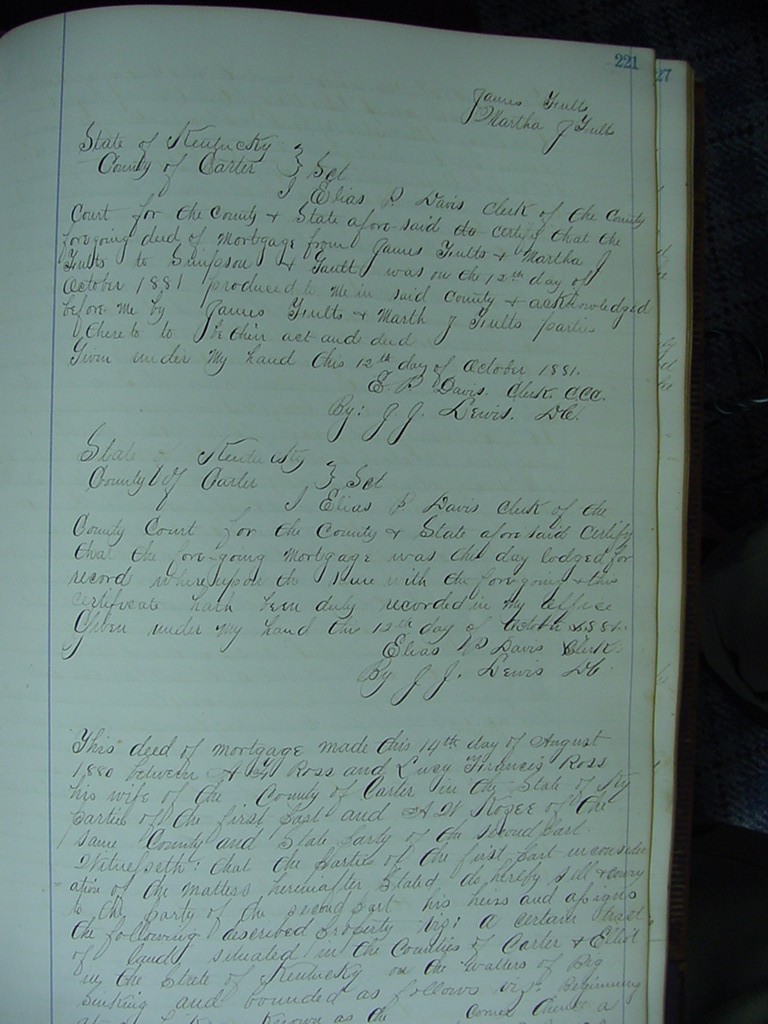 221
27
James Fults
Martha J Fults
State of Kentucky
County of Carter } Sct
I Elias P. Davis Clerk of the County
Court for the County & State afore said do certify that the
foregoing deed of Mortgage from James Fults & Martha J
Fults to Simpson & was on the 12th day of
October 1881 produced to me in said County & acknowledged
before me by James Fults & Marth J Fults parties
thereto to be their act and deed
Given under my hand this 12th day of October 1881.
E. P. Davis. Clerk. CCC.
By: J. J. Lewis. DC.
State of Kentucky
County of Carter } Sct
I Elias P Davis Clerk of the
County Court for the County & State afore said Certify
that the fore-going Mortgage was this day lodged for
record whereupon the same with the foregoing & this
certificate hath been duly recorded in my office
Given under my hand this 12th day of October 1881.
Elias P Davis Clerk.
By J. J. Lewis DC.
This deed of mortgage made this 14th day of August
1880 between A Ross and Lucy Francis Ross
his wife of the County of Carter in the State of Ky
parties of the first part and A W Kozee of the
same County and State party of the second part.
Witnesseth: that the parties of the first part in consider
ation of the matters hereinafter stated do hereby sell & convey
to the party of the second part his heirs and assigns
the following described property viz: a certain tract
of land situated in the Counties of Carter & Elliot
in the State of Kentucky on the Watters of Big
Sinking and bounded as follows viz: Beginning
known as the corner thence a